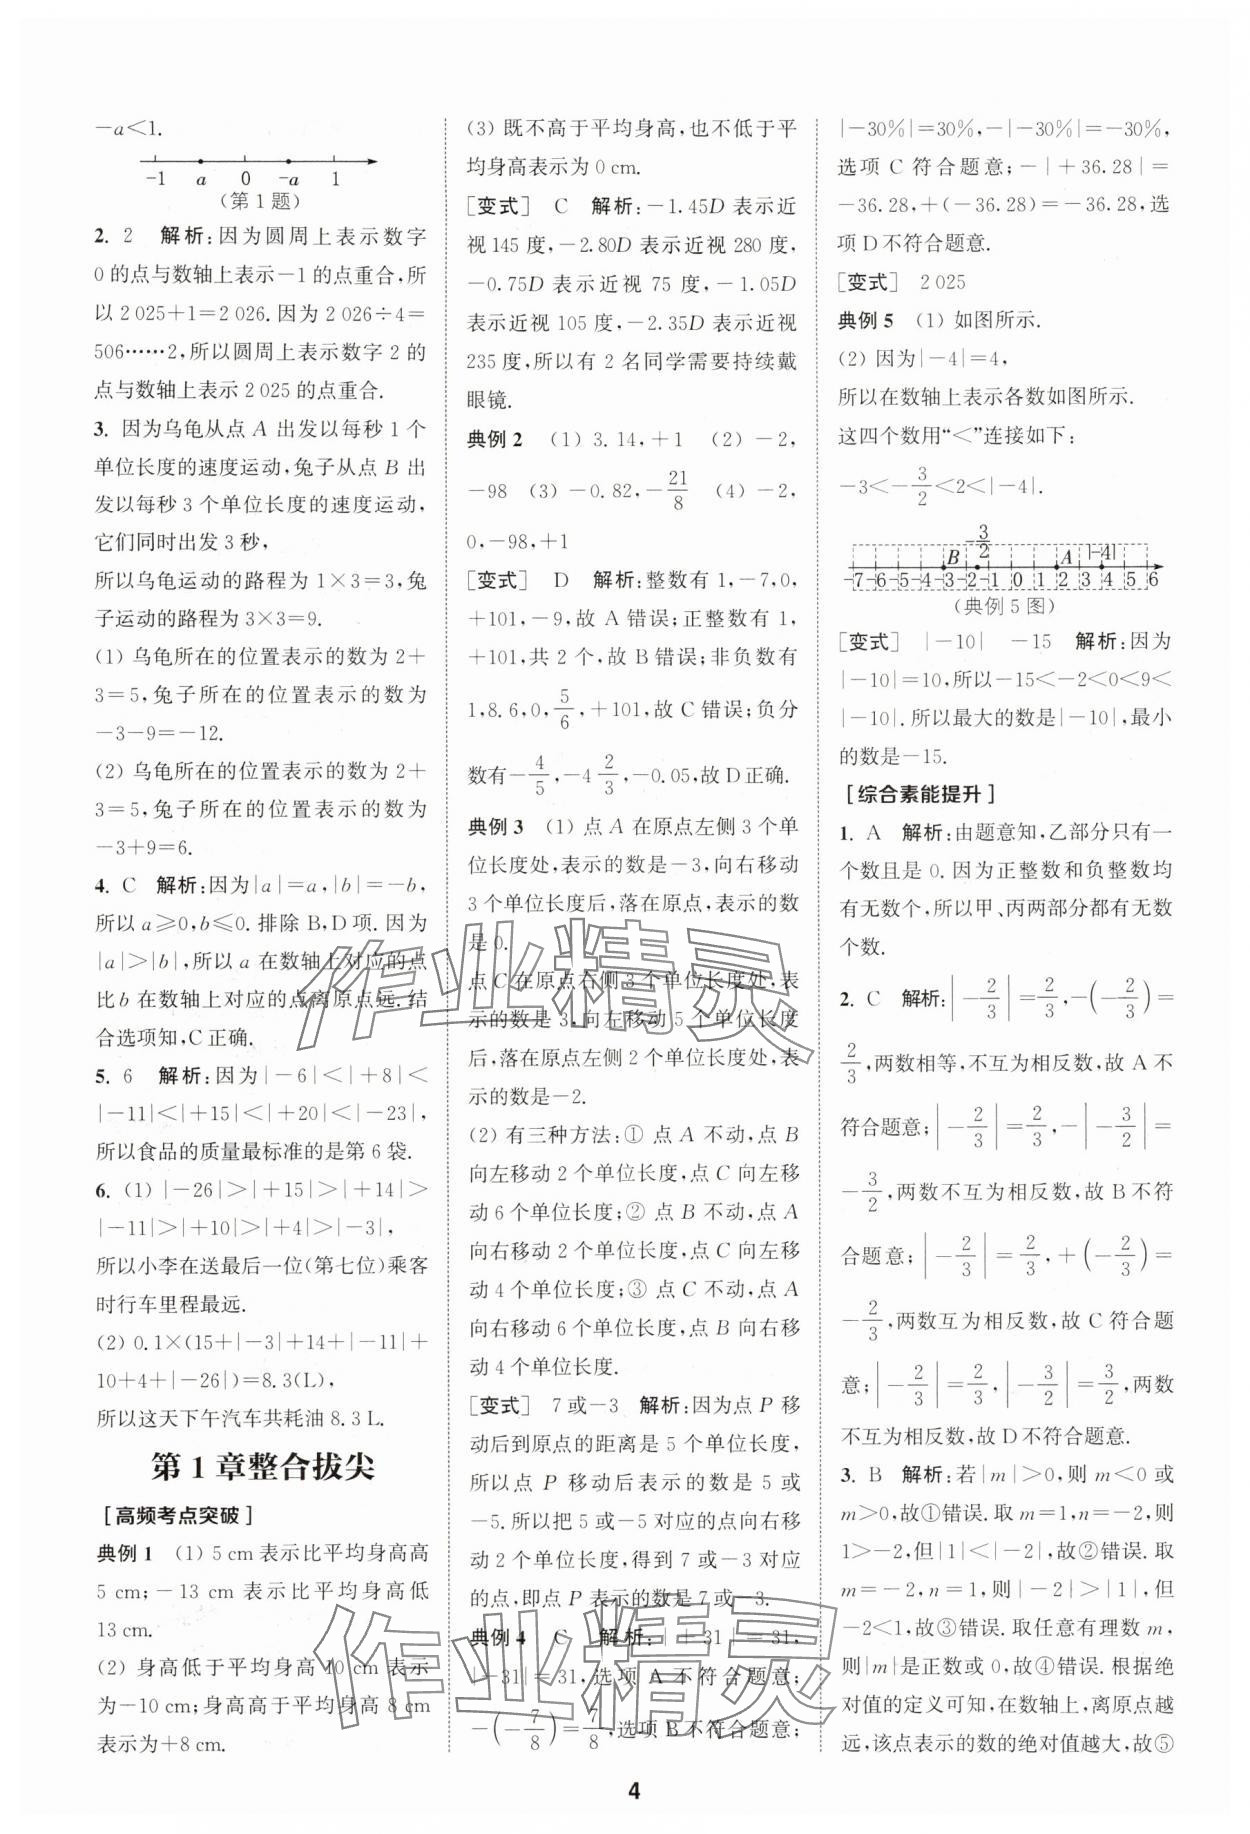 －a＜1.
-1 a 0 -a 1
(第1题)
2. 2 解析:因为圆周上表示数字
0的点与数轴上表示－1的点重合,所
以2 025＋1＝2 026.因为2 026÷4＝
506……2,所以圆周上表示数字2的
点与数轴上表示2 025的点重合.
3. 因为乌龟从点A出发以每秒1个
单位长度的速度运动,兔子从点B出
发以每秒3个单位长度的速度运动,
它们同时出发3秒,
所以乌龟运动的路程为1×3＝3,兔
子运动的路程为3×3＝9.
(1) 乌龟所在的位置表示的数为2＋
3＝5,兔子所在的位置表示的数为
－3－9＝－12.
(2) 乌龟所在的位置表示的数为2＋
3＝5,兔子所在的位置表示的数为
－3＋9＝6.
4. C 解析:因为|a|＝a,|b|＝－b,
所以a≥0,b≤0.排除B,D项.因为
|a|＞|b|,所以a在数轴上对应的点
比b在数轴上对应的点离原点远.结
合选项知,C正确.
5. 6 解析:因为|－6|＜|＋8|＜
|－11|＜|＋15|＜|＋20|＜|－23|,
所以食品的质量最标准的是第6袋.
6. (1) |－26|＞|＋15|＞|＋14|＞
|－11|＞|＋10|＞|＋4|＞|－3|,
所以小李在送最后一位(第七位)乘客
时行车里程最远.
(2) 0.1×(15＋|－3|＋14＋|－11|＋
10＋4＋|－26|)＝8.3(L),
所以这天下午汽车共耗油8.3 L.
第1章整合拔尖
[高频考点突破]
典例1 (1) 5 cm表示比平均身高高
5 cm;－13 cm表示比平均身高低
13 cm.
(2) 身高低于平均身高10 cm表示
为－10 cm;身高高于平均身高8 cm
表示为＋8 cm.
(3) 既不高于平均身高,也不低于平
均身高表示为0 cm.
[变式] C 解析:－1.45D表示近
视145度,－2.80D表示近视280度,
－0.75D表示近视75度,－1.05D
表示近视105度,－2.35D表示近视
235度,所以有2名同学需要持续戴
眼镜.
典例2 (1) 3.14,＋1 (2) －2,
－98 (3) －0.82,－21/8 (4) －2,
0,－98,＋1
[变式] D 解析:整数有1,－7,0,
＋101,－9,故A错误;正整数有1,
＋101,共2个,故B错误;非负数有
1,8.6,0,5/6,＋101,故C错误;负分
数有－4/5,－4 2/3,－0.05,故D正确.
典例3 (1) 点A在原点左侧3个单
位长度处,表示的数是－3,向右移动
3个单位长度后,落在原点,表示的数
是0.
点C在原点右侧3个单位长度处,表
示的数是3,向左移动5个单位长度
后,落在原点左侧2个单位长度处,表
示的数是－2.
(2) 有三种方法:① 点A不动,点B
向左移动2个单位长度,点C向左移
动6个单位长度;② 点B不动,点A
向右移动2个单位长度,点C向左移
动4个单位长度;③ 点C不动,点A
向右移动6个单位长度,点B向右移
动4个单位长度.
[变式] 7或－3 解析:因为点P移
动后到原点的距离是5个单位长度,
所以点P移动后表示的数是5或
－5.所以把5或－5对应的点向右移
动2个单位长度,得到7或－3对应
的点,即点P表示的数是7或－3.
典例4 C 解析:|＋31|＝31,
|－31|＝31,选项A不符合题意;
－(－7/8)＝7/8,选项B不符合题意;
|－30%|＝30%,－|－30%|＝－30%,
选项C符合题意;－|＋36.28|＝
－36.28,＋(－36.28)＝－36.28,选
项D不符合题意.
[变式] 2 025
典例5 (1) 如图所示.
(2) 因为|－4|＝4,
所以在数轴上表示各数如图所示.
这四个数用“＜”连接如下:
－3＜－3/2＜2＜|－4|.
B -3/2 A |-4|
-7 -6 -5 -4 -3 -2 -1 0 1 2 3 4 5 6
(典例5图)
[变式] |－10| －15 解析:因为
|－10|＝10,所以－15＜－2＜0＜9＜
|－10|.所以最大的数是|－10|,最小
的数是－15.
[综合素能提升]
1. A 解析:由题意知,乙部分只有一
个数且是0.因为正整数和负整数均
有无数个,所以甲、丙两部分都有无数
个数.
2. C 解析:|－2/3|＝2/3,－(－2/3)＝
2/3,两数相等,不互为相反数,故A不
符合题意;|－2/3|＝2/3,－|－3/2|＝
－3/2,两数不互为相反数,故B不符
合题意;|－2/3|＝2/3,＋(－2/3)＝
－2/3,两数互为相反数,故C符合题
意;|－2/3|＝2/3,|－3/2|＝3/2,两数
不互为相反数,故D不符合题意.
3. B 解析:若|m|＞0,则m＜0或
m＞0,故①错误.取m＝1,n＝－2,则
1＞－2,但|1|＜|－2|,故②错误.取
m＝－2,n＝1,则|－2|＞|1|,但
－2＜1,故③错误.取任意有理数m,
则|m|是正数或0,故④错误.根据绝
对值的定义可知,在数轴上,离原点越
远,该点表示的数的绝对值越大,故⑤
作业精灵
作业精灵
4